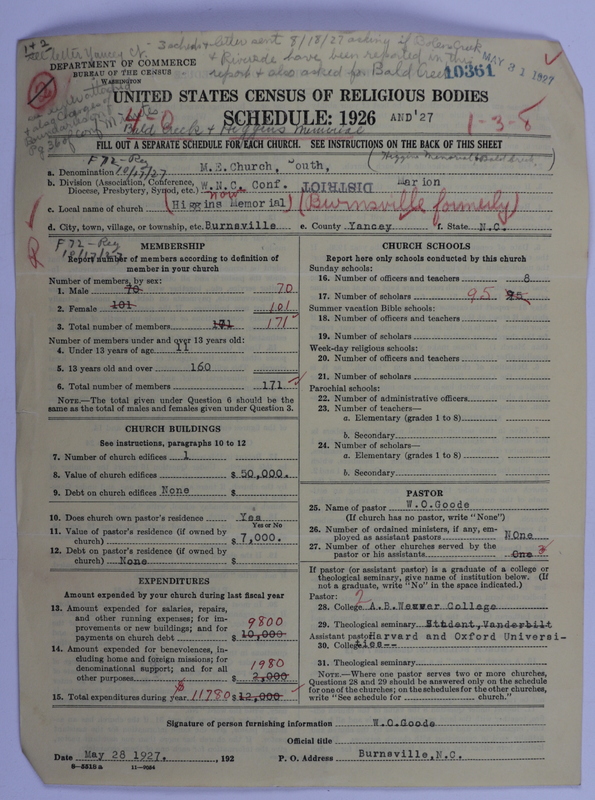 1 + 2
see letter Yancey Co. - 3 scheds + letter sent 8/18/27 asking if Bolens Creek
+ Riverside have been reported in this
report & also asked for Bald Creek
MAY 31 1927
DEPARTMENT OF COMMERCE
BUREAU OF THE CENSUS
WASHINGTON
10361
UNITED STATES CENSUS OF RELIGIOUS BODIES
4-0
SCHEDULE: 1926 AND '27
1-3-8
Bald Creek & Higgins Memorial
FILL OUT A SEPARATE SCHEDULE FOR EACH CHURCH. SEE INSTRUCTIONS ON THE BACK OF THIS SHEET
F 72-Reg
10/17/27
(Higgins Memorial & Bald Creek)
a. Denomination M.E.Church, South,
b. Division (Association, Conference, Diocese, Presbytery, Synod, etc.) W.N.C. Conf. DISTRICT Marion
now
c. Local name of church (Higgins Memorial) (Burnsville formerly)
d. City, town, village, or township, etc. Burnsville e. County Yancey f. State N.C.
R
F 72-Reg
10/17/27
MEMBERSHIP
Report number of members according to definition of
member in your church
Number of members, by sex:
1. Male 70 70
2. Female 101 101
3. Total number of members 171 171
Number of members under and over 13 years old:
4. Under 13 years of age 11
5. 13 years old and over 160
6. Total number of members 171
NOTE.—The total given under Question 6 should be
same as the total of males and females given under Question 3.
CHURCH BUILDINGS
See instructions, paragraphs 10 to 12
7. Number of church edifices 1
8. Value of church edifices $ 50,000.
9. Debt on church edifices None $
10. Does church own pastor's residence Yes
Yes or No
11. Value of pastor's residence (if owned by
church) $ 7,000.
12. Debt on pastor's residence (if owned by
church) None $
EXPENDITURES
Amount expended by your church during last fiscal year
13. Amount expended for salaries, repairs,
and other running expenses; for im-
provements or new buildings; and for 9800
payments on church debt $ 10,000.
14. Amount expended for benevolences, in-
cluding home and foreign missions; for
denominational support; and for all 1980
other purposes $ 2,000
15. Total expenditures during year $ 11780 $ 12,000
CHURCH SCHOOLS
Report here only schools conducted by this church
Sunday schools:
16. Number of officers and teachers 8
17. Number of scholars 95 95
Summer vacation Bible schools:
18. Number of officers and teachers
19. Number of scholars
Week-day religious schools:
20. Number of officers and teachers
21. Number of scholars
Parochial schools:
22. Number of administrative officers
23. Number of teachers—
a. Elementary (grades 1 to 8)
b. Secondary
24. Number of scholars—
a. Elementary (grades 1 to 8)
b. Secondary
PASTOR
25. Name of pastor W.O.Goode
(If church has no pastor, write "None")
26. Number of ordained ministers, if any, em-
ployed as assistant pastors NOne
27. Number of other churches served by the
pastor or his assistants One 3
If pastor (or assistant pastor) is a graduate of a college or
theological seminary, give name of institution below. (If
not a graduate, write "No" in the space indicated.)
Pastor: 2
28. College A.B.Weaver College
29. Theological seminary Student, Vanderbilt
Assistant pastor: Harvard and Oxford Universi-
30. College ties--
31. Theological seminary
NOTE.—Where one pastor serves two or more churches,
Questions 28 and 29 should be answered only on the schedule
for one of the churches; on the schedules for the other churches,
write "See schedule for church."
Signature of person furnishing information W.O.Goode
Official title
Date May 28 1927. , 192 P. O. Address Burnsville, N.C.
8-551B a 11-9024